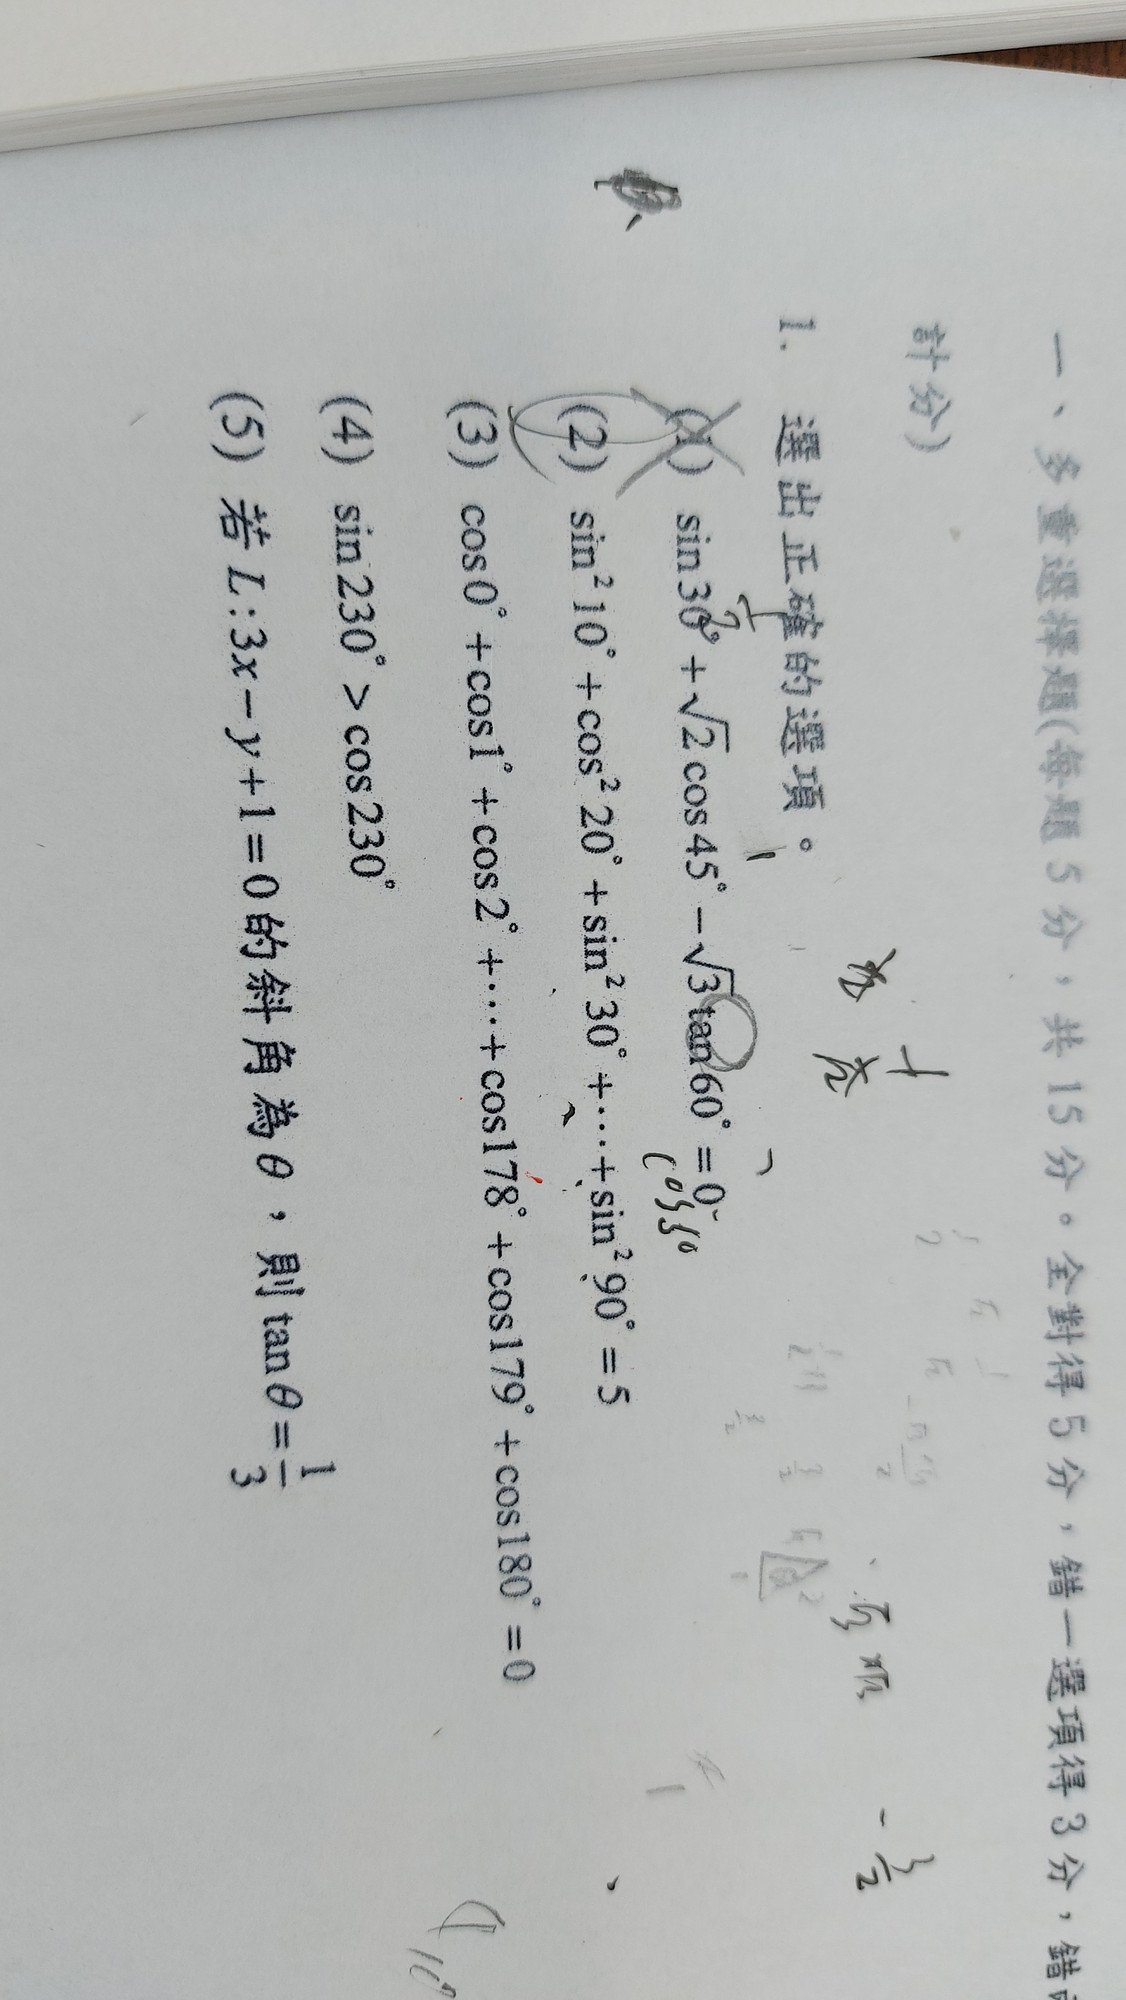 一、多重選擇題(每題 5 分，共 15 分。全對得 5 分，錯一選項得 3 分，錯
計分)
1. 選出正確的選項。
(1) sin30°+√2cos45°−√3tan60°=0
(2) sin²10°+cos²20°+sin²30°+⋯+sin²90°=5
(3) cos0°+cos1°+cos2°+⋯+cos178°+cos179°+cos180°=0
(4) sin230°>cos230°
(5) 若L:3x−y+1=0的斜角為θ，則tanθ=1/3